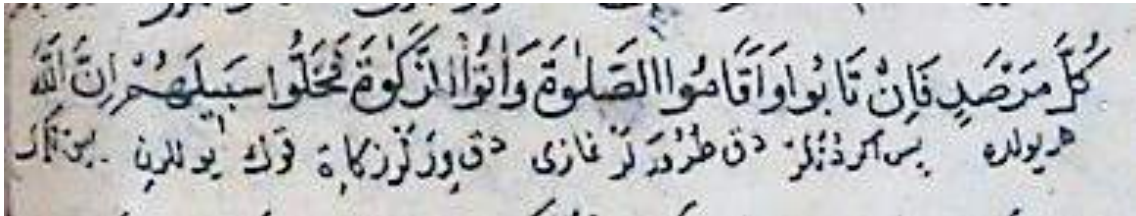 كُلَّ مَرْصَدٍ فَاِنْ تَابُوا وَاَقَامُوا الصَّلٰوةَ وَاٰتُوا الزَّكٰوةَ فَخَلُّوا سَبِيلَهُمْ اِنَّ اللّٰهَ
هر يولده پس اكر دق طورر لر نمازى دق ويرر لر زكاة قوك يوللرن